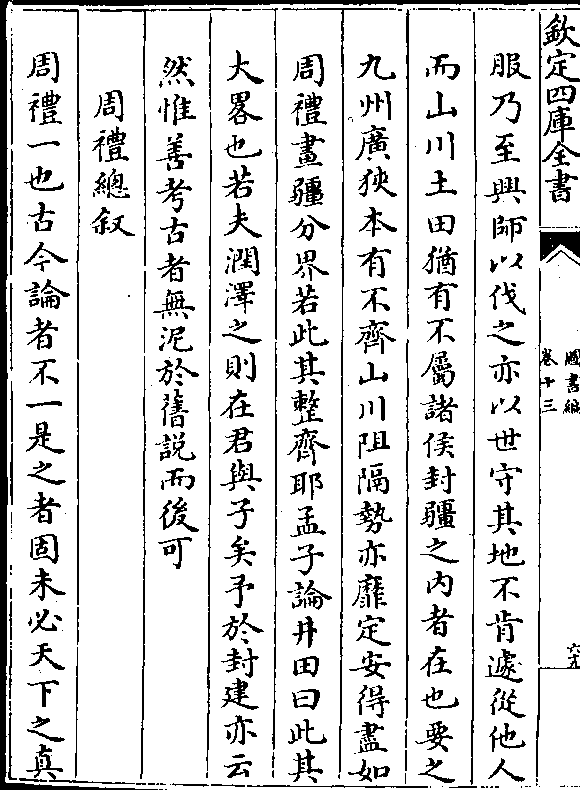 欽定四庫全書
圖書編
卷十三
六五
服乃至興師以伐之亦以世守其地不肯遽從他人
而山川土田猶有不屬諸侯封疆之内者在也要之
九州廣狹本有不齊山川阻隔勢亦靡定安得盡如
周禮畫疆分界若此其整齊耶孟子論井田曰此其
大畧也若夫潤澤之則在君與子矣予於封建亦云
然惟善考古者無泥於舊説而後可
周禮總叙
周禮一也古今論者不一是之者固未必天下之真